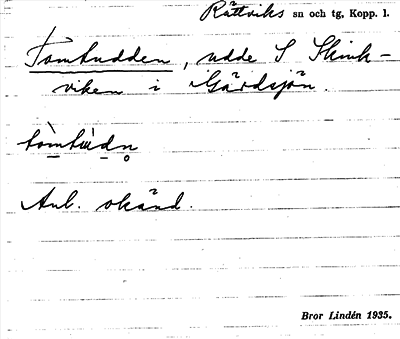 Rättviks sn och tg, Kopp. l.
Tomtudden, udde S Skink-
viken i Gärdsjön.
tòmtùdn̥
Anl. okänd.
Bror Lindén 1935.